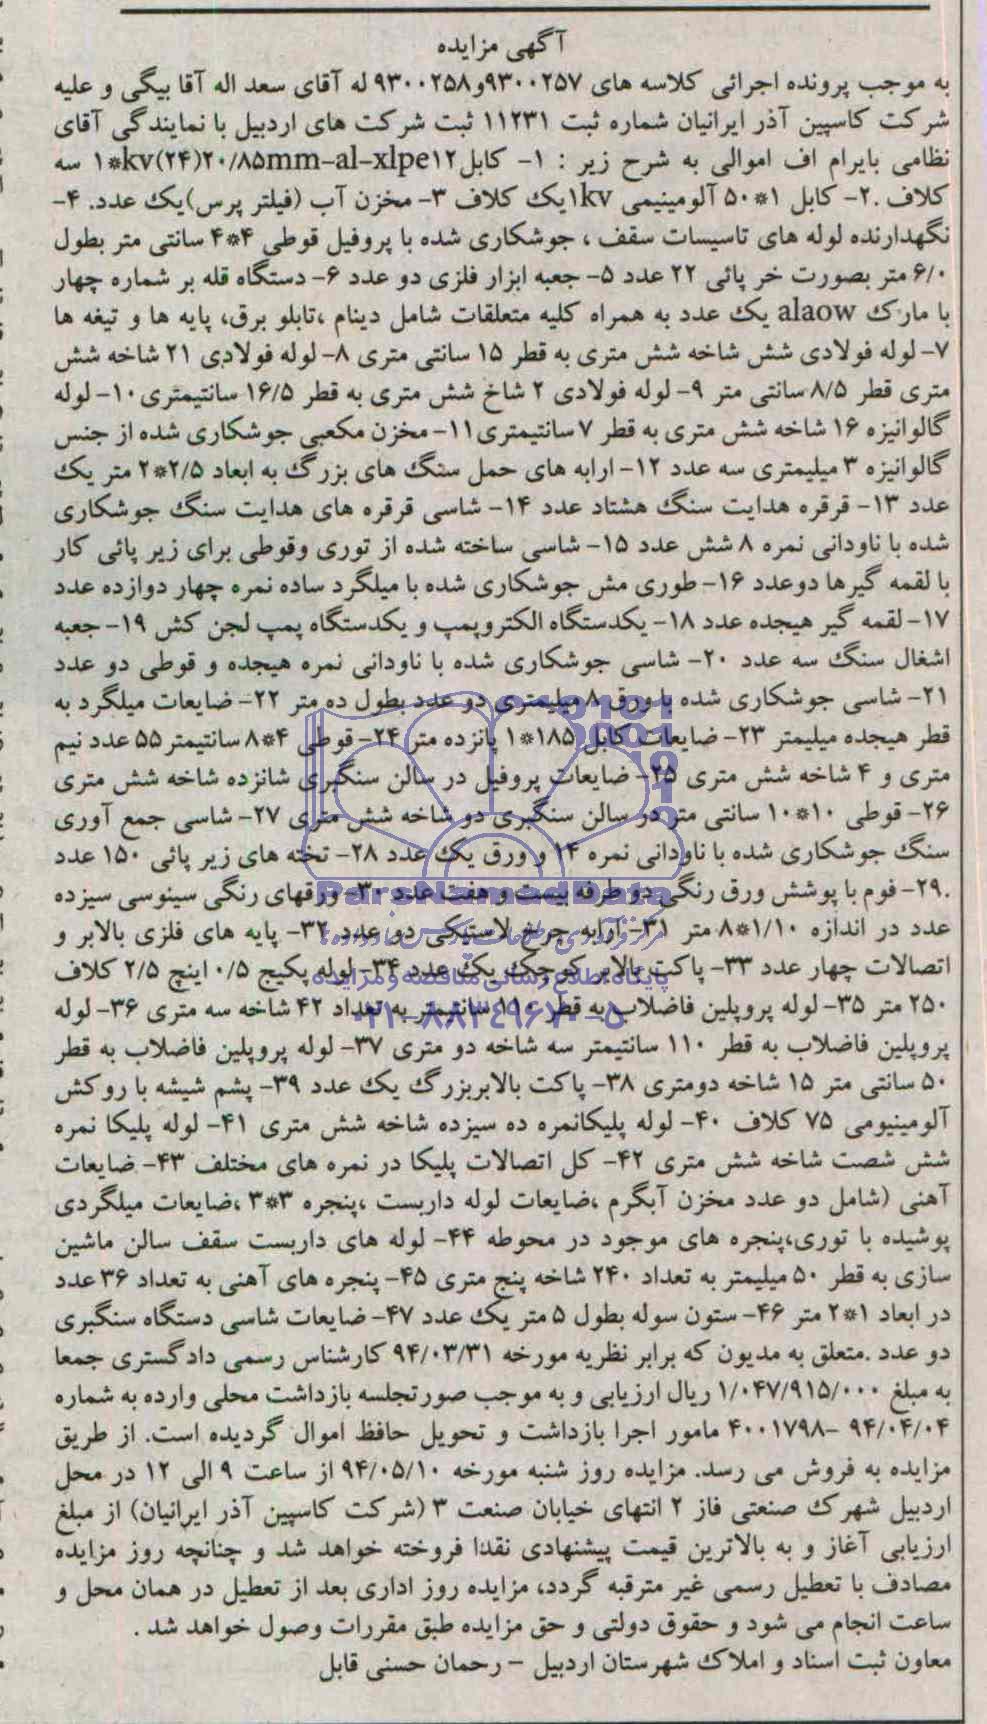 آگهی مزایده
به موجب پرونده اجرائی کلاسه های ۹۳۰۰۲۵۷و۹۳۰۰۲۵۸ له آقای سعد اله آقا بیگی و علیه
شرکت کاسپین آذر ایرانیان شماره ثبت ۱۱۲۳۱ ثبت شرکت های اردبیل با نمایندگی آقای
نظامی بایرام اف اموالی به شرح زیر : ۱- کابل۱۲kv(۲۴)۲۰/۸۵mm-al-xlpe*۱ سه
کلاف .۲- کابل ۱*۵۰ آلومینیمی ۱kvیک کلاف ۳- مخزن آب (فیلتر پرس)یک عدد. ۴-
نگهدارنده لوله های تاسیسات سقف ، جوشکاری شده با پروفیل قوطی ۴*۴ سانتی متر بطول
۶/۰ متر بصورت خر پائی ۲۲ عدد ۵- جعبه ابزار فلزی دو عدد ۶- دستگاه قله بر شماره چهار
با مارک alaow یک عدد به همراه کلیه متعلقات شامل دینام ،تابلو برق، پایه ها و تیغه ها
۷- لوله فولادی شش شاخه شش متری به قطر ۱۵ سانتی متری ۸- لوله فولادی ۲۱ شاخه شش
متری قطر ۸/۵ سانتی متر ۹- لوله فولادی ۲ شاخ شش متری به قطر ۱۶/۵ سانتیمتری۱۰- لوله
گالوانیزه ۱۶ شاخه شش متری به قطر ۷ سانتیمتری۱۱- مخزن مکعبی جوشکاری شده از جنس
گالوانیزه ۳ میلیمتری سه عدد ۱۲- ارابه های حمل سنگ های بزرگ به ابعاد ۲/۵*۲ متر یک
عدد ۱۳- قرقره هدایت سنگ هشتاد عدد ۱۴- شاسی قرقره های هدایت سنگ جوشکاری
شده با ناودانی نمره ۸ شش عدد ۱۵- شاسی ساخته شده از توری وقوطی برای زیر پائی کار
با لقمه گیرها دوعدد ۱۶- طوری مش جوشکاری شده با میلگرد ساده نمره چهار دوازده عدد
۱۷- لقمه گیر هیجده عدد ۱۸- یکدستگاه الکتروپمپ و یکدستگاه پمپ لجن کش ۱۹- جعبه
اشغال سنگ سه عدد ۲۰- شاسی جوشکاری شده با ناودانی نمره هیجده و قوطی دو عدد
۲۱- شاسی جوشکاری شده با ورق ۸ میلیمتری دو عدد بطول ده متر ۲۲- ضایعات میلگرد به
قطر هیجده میلیمتر ۲۳- ضایعات کابل ۱۸۵*۱ پانزده متر ۲۴- قوطی ۴*۸ سانتیمتر ۵۵ عدد نیم
متری و ۴ شاخه شش متری ۲۵- ضایعات پروفیل در سالن سنگبری شانزده شاخه شش متری
۲۶- قوطی ۱۰*۱۰ سانتی متر در سالن سنگبری دو شاخه شش متری ۲۷- شاسی جمع آوری
سنگ جوشکاری شده با ناودانی نمره ۱۴ و ورق یک عدد ۲۸- تخته های زیر پائی ۱۵۰ عدد
.۲۹- فوم با پوشش ورق رنگی دو طرفه بیست و هفت عدد ۳۰- ورقهای رنگی سینوسی سیزده
عدد در اندازه ۱/۱۰*۸ متر ۳۱- ارابه چرخ لاستیکی دو عدد ۳۲- پایه های فلزی بالابر و
اتصالات چهار عدد ۳۳- پاکت بالابر کوچک یک عدد ۳۴- لوله پکیج ۰/۵ اینچ ۲/۵ کلاف
۲۵۰ متر ۳۵- لوله پروپلین فاضلاب به قطر ۱۱۰ سانتیمتر به تعداد ۴۲ شاخه سه متری ۳۶- لوله
پروپلین فاضلاب به قطر ۱۱۰ سانتیمتر سه شاخه دو متری ۳۷- لوله پروپلین فاضلاب به قطر
۵۰ سانتی متر ۱۵ شاخه دومتری ۳۸- پاکت بالابربزرگ یک عدد ۳۹- پشم شیشه با روکش
آلومینیومی ۷۵ کلاف ۴۰- لوله پلیکانمره ده سیزده شاخه شش متری ۴۱- لوله پلیکا نمره
شش شصت شاخه شش متری ۴۲- کل اتصالات پلیکا در نمره های مختلف ۴۳- ضایعات
آهنی (شامل دو عدد مخزن آبگرم ،ضایعات لوله داربست ،پنجره ۳*۳ ،ضایعات میلگردی
پوشیده با توری،پنجره های موجود در محوطه ۴۴- لوله های داربست سقف سالن ماشین
سازی به قطر ۵۰ میلیمتر به تعداد ۲۴۰ شاخه پنج متری ۴۵- پنجره های آهنی به تعداد ۳۶ عدد
در ابعاد ۱*۲ متر ۴۶- ستون سوله بطول ۵ متر یک عدد ۴۷- ضایعات شاسی دستگاه سنگبری
دو عدد .متعلق به مدیون که برابر نظریه مورخه ۹۴/۰۳/۳۱ کارشناس رسمی دادگستری جمعا
به مبلغ ۱/۰۴۷/۹۱۵/۰۰۰ ریال ارزیابی و به موجب صورتجلسه بازداشت محلی وارده به شماره
۴۰۰۱۷۹۸- ۹۴/۰۴/۰۴ مامور اجرا بازداشت و تحویل حافظ اموال گردیده است. از طریق
مزایده به فروش می رسد. مزایده روز شنبه مورخه ۹۴/۰۵/۱۰ از ساعت ۹ الی ۱۲ در محل
اردبیل شهرک صنعتی فاز ۲ انتهای خیابان صنعت ۳ (شرکت کاسپین آذر ایرانیان) از مبلغ
ارزیابی آغاز و به بالاترین قیمت پیشنهادی نقدا فروخته خواهد شد و چنانچه روز مزایده
مصادف با تعطیل رسمی غیر مترقبه گردد، مزایده روز اداری بعد از تعطیل در همان محل و
ساعت انجام می شود و حقوق دولتی و حق مزایده طبق مقررات وصول خواهد شد .
معاون ثبت اسناد و املاک شهرستان اردبیل - رحمان حسنی قابل
ParsNamadData
پایگاه اطلاع رسانی مناقصه و مزایده
۰۲۱-۸۸۳۴۹۶۷۰-۵